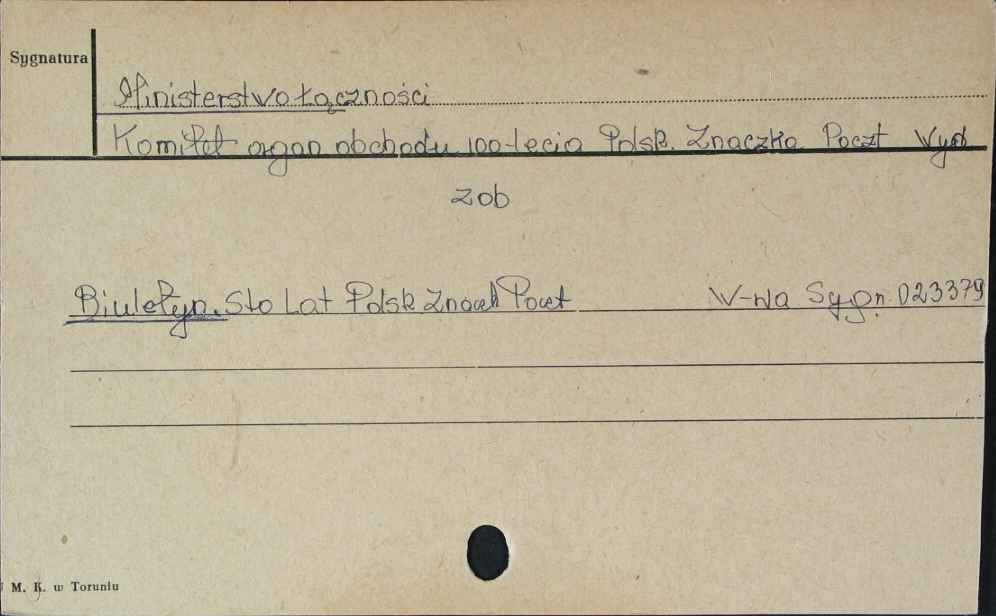 Sygnatura
Ministerstwo Łączności
Komitet organ obchodu 100-lecia Polsk. Znaczka Poczt Wyd
zob
Biuletyn. Sto Lat Polsk Znacz Poczt W-wa Sygn. 023379
M. K. w Toruniu